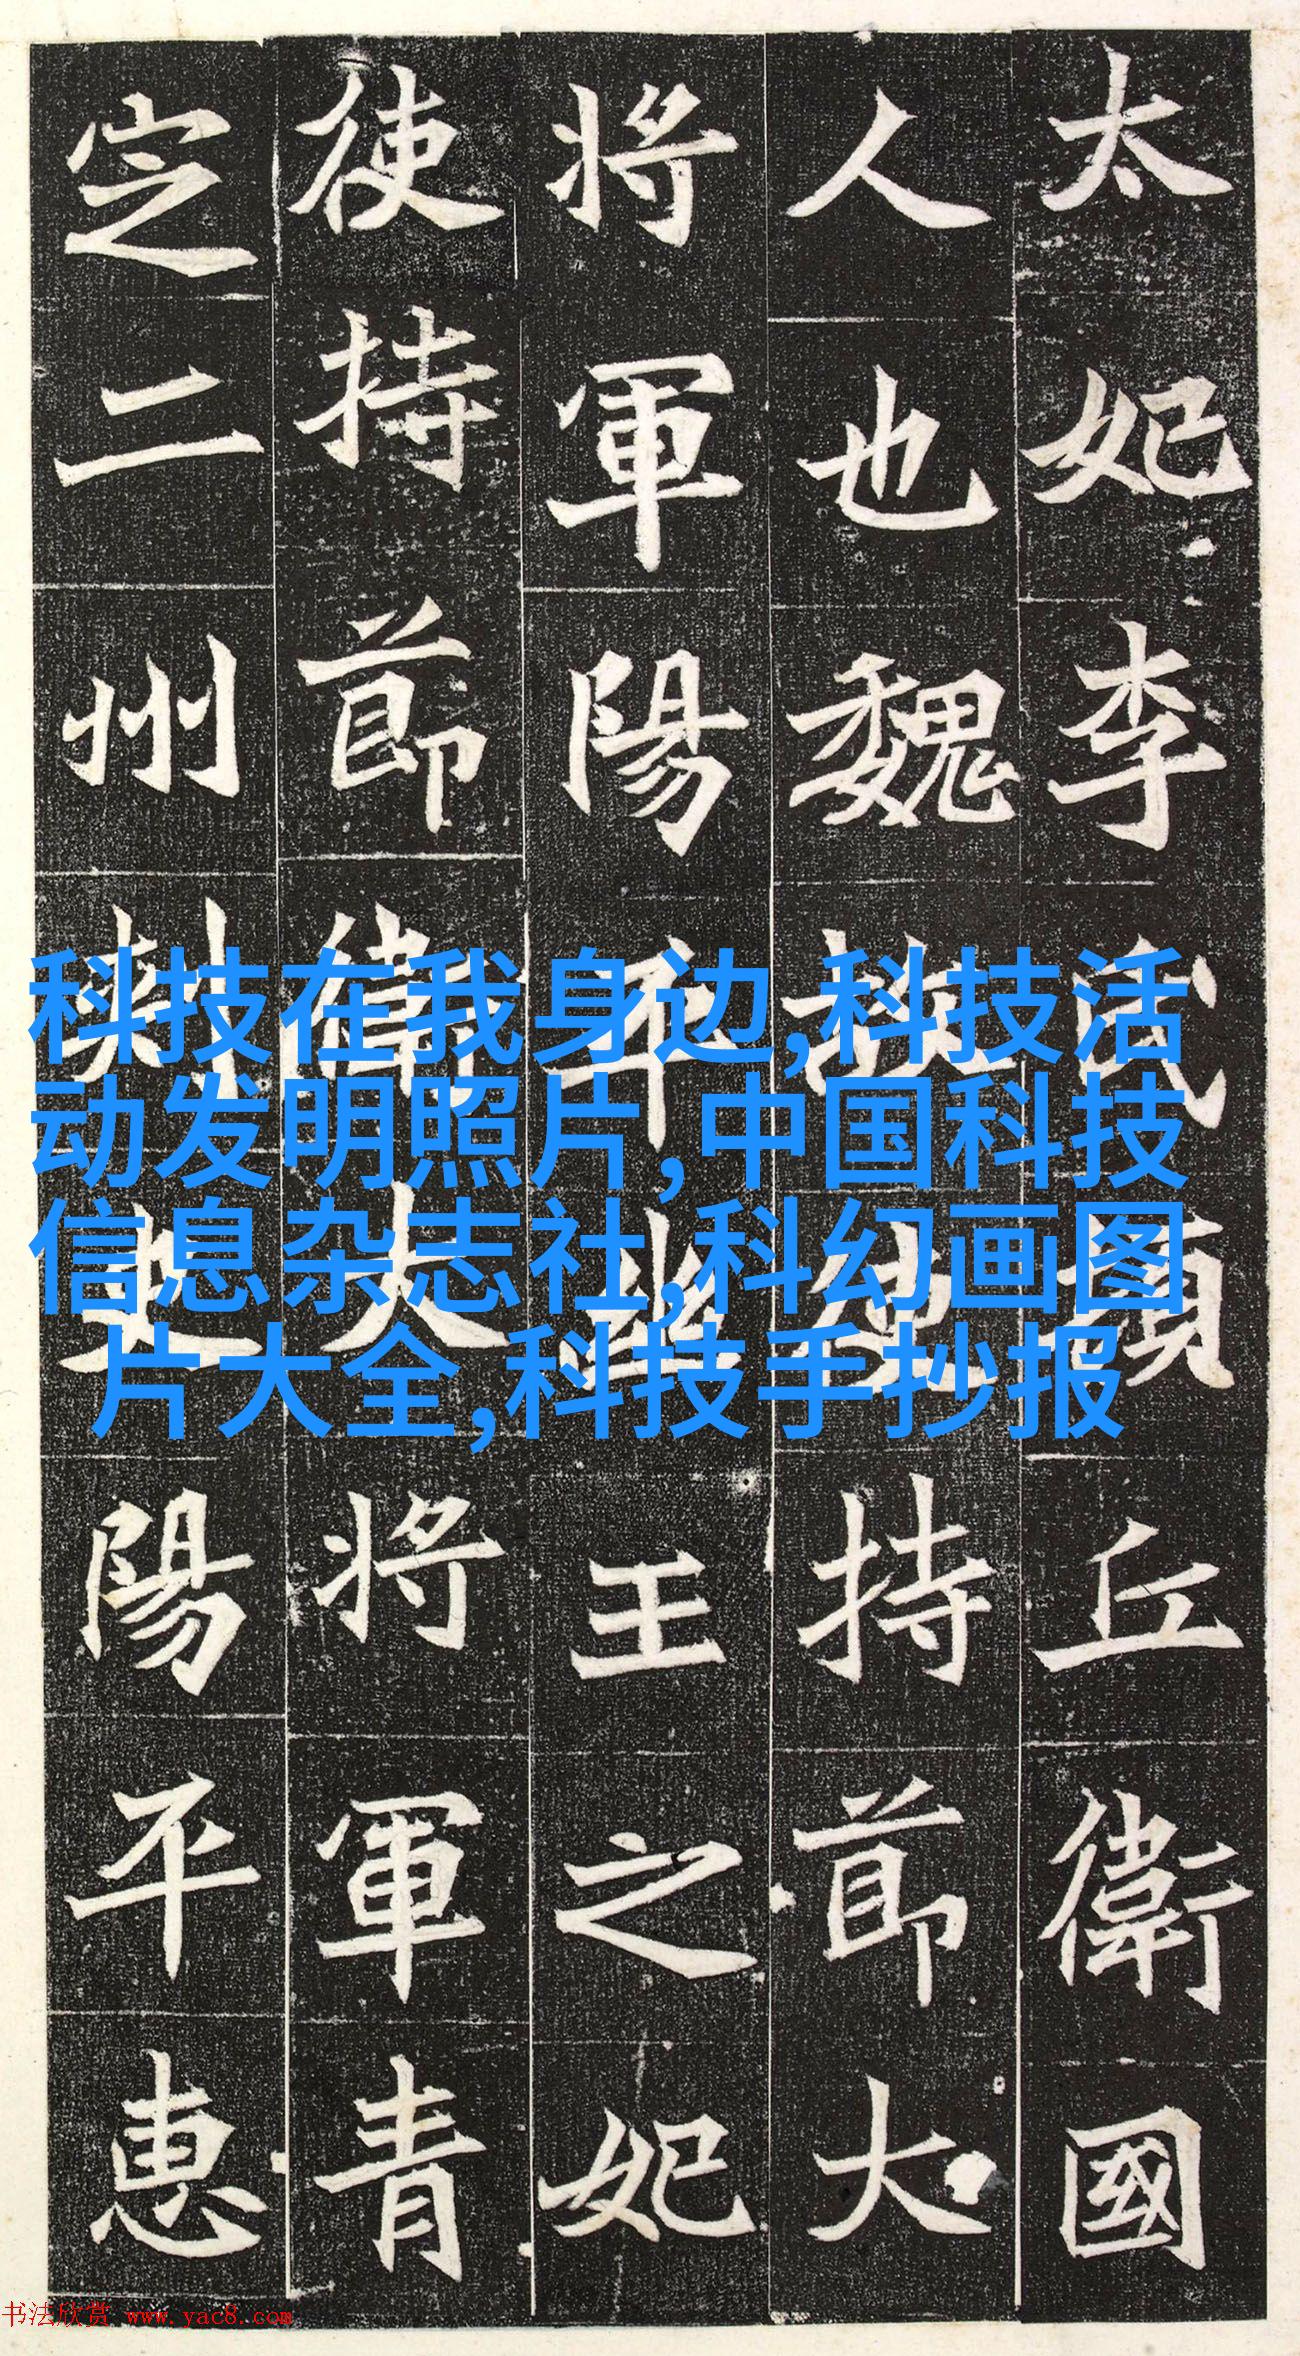 太妃李氏頓丘衛國
人也魏故使持節大
將軍陽平幽王之妃
使持節衛大將軍青
定二州刺史陽平惠
科技在我身边,科技活
动发明照片,中国科技
信息杂志社,科幻画图
片大全,科技手抄报
书法欣赏 www.yac8.com